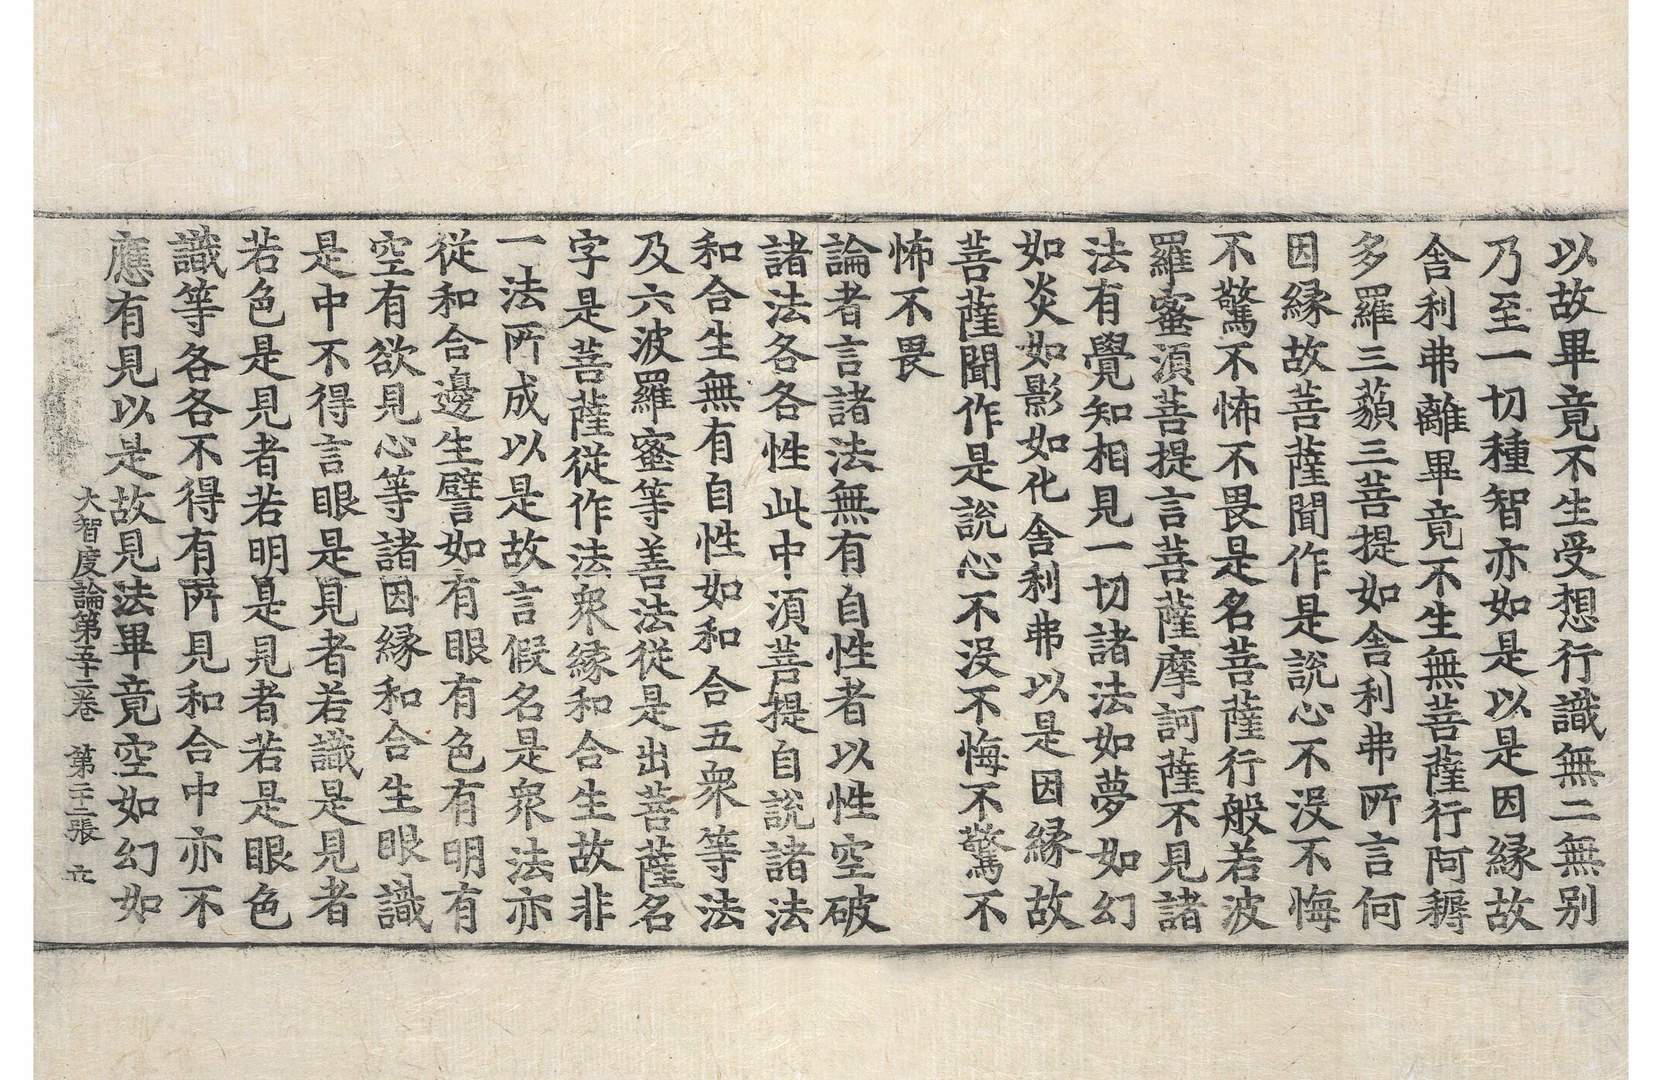 以故畢竟不生受想行識無二無別
乃至一切種智亦如是以是因縁故
舎利弗離畢竟不生無菩薩行阿耨
多羅三藐三菩提如舎利弗所言何
因縁故菩薩聞作是說心不没不悔
不驚不怖不畏是名菩薩行般若波
羅蜜湏菩提言菩薩摩訶薩不見諸
法有覺知相見一切諸法如夢如幻
如炎如影如化舎利弗以是因縁故
菩薩聞作是說心不没不悔不驚不
怖不畏
論者言諸法無有自性者以性空破
諸法各各性此中湏菩提自說諸法
和合生無有自性如和合五衆等法
及六波羅蜜等善法従是出菩薩名
字是菩薩従作法衆縁和合生故非
一法所成以是故言假名是衆法亦
従和合邊生譬如有眼有色有明有
空有欲見心等諸因縁和合生眼識
是中不得言眼是見者若識是見者
若色是見者若明是見者若是眼色
識等各各不得有所見和合中亦不
應有見以是故見法畢竟空如幻如
大智度論第五十二卷 第二十二張